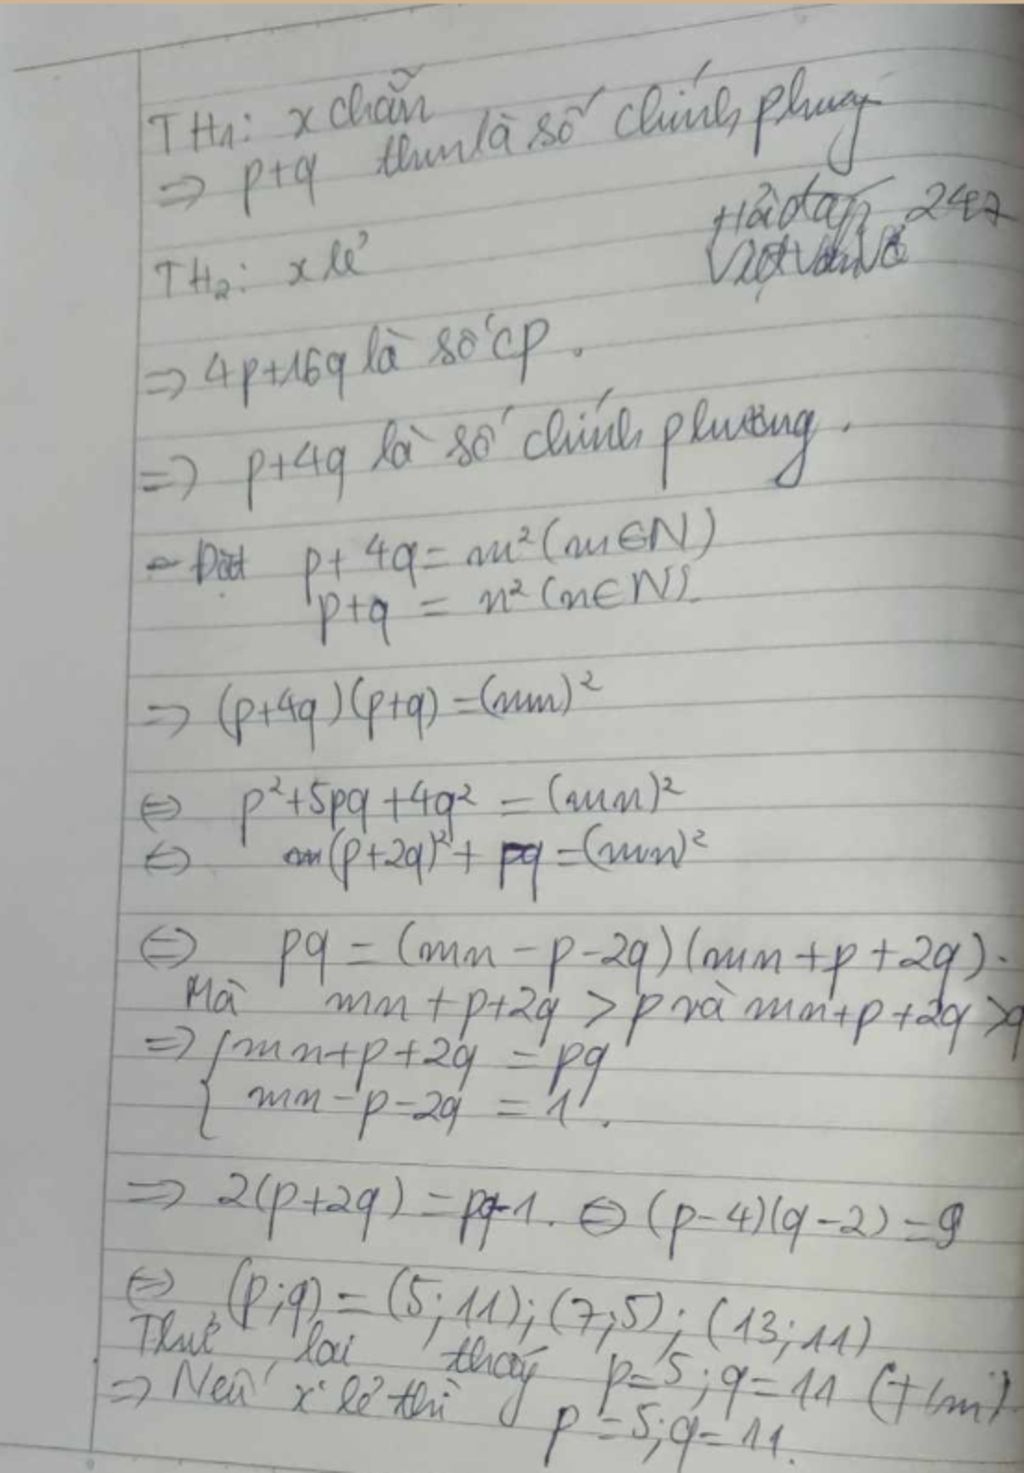 TH1: x chẵn
=> p+q là số chính phương
TH2: x lẻ
=> 4p+16q là số cp.
=> p+4q là số chính phương.
- Đặt p+4q = m² (m∈N)
p+q = n² (n∈N)
=> (p+4q)(p+q) = (mn)²
<=> p²+5pq+4q² = (mn)²
<=> (p+2q)² + pq = (mn)²
<=> pq = (mn-p-2q)(mn+p+2q).
Mà mn+p+2q > p và mn+p+2q > q
=> { mn+p+2q = pq
mn-p-2q = 1.
=> 2(p+2q) = pq-1. <=> (p-4)(q-2) = 9
<=> (p;q) = (5;11); (7;5); (13;11)
Thử lại thấy p=5; q=11 (t/m)
=> Nếu x lẻ thì p=5; q=11.